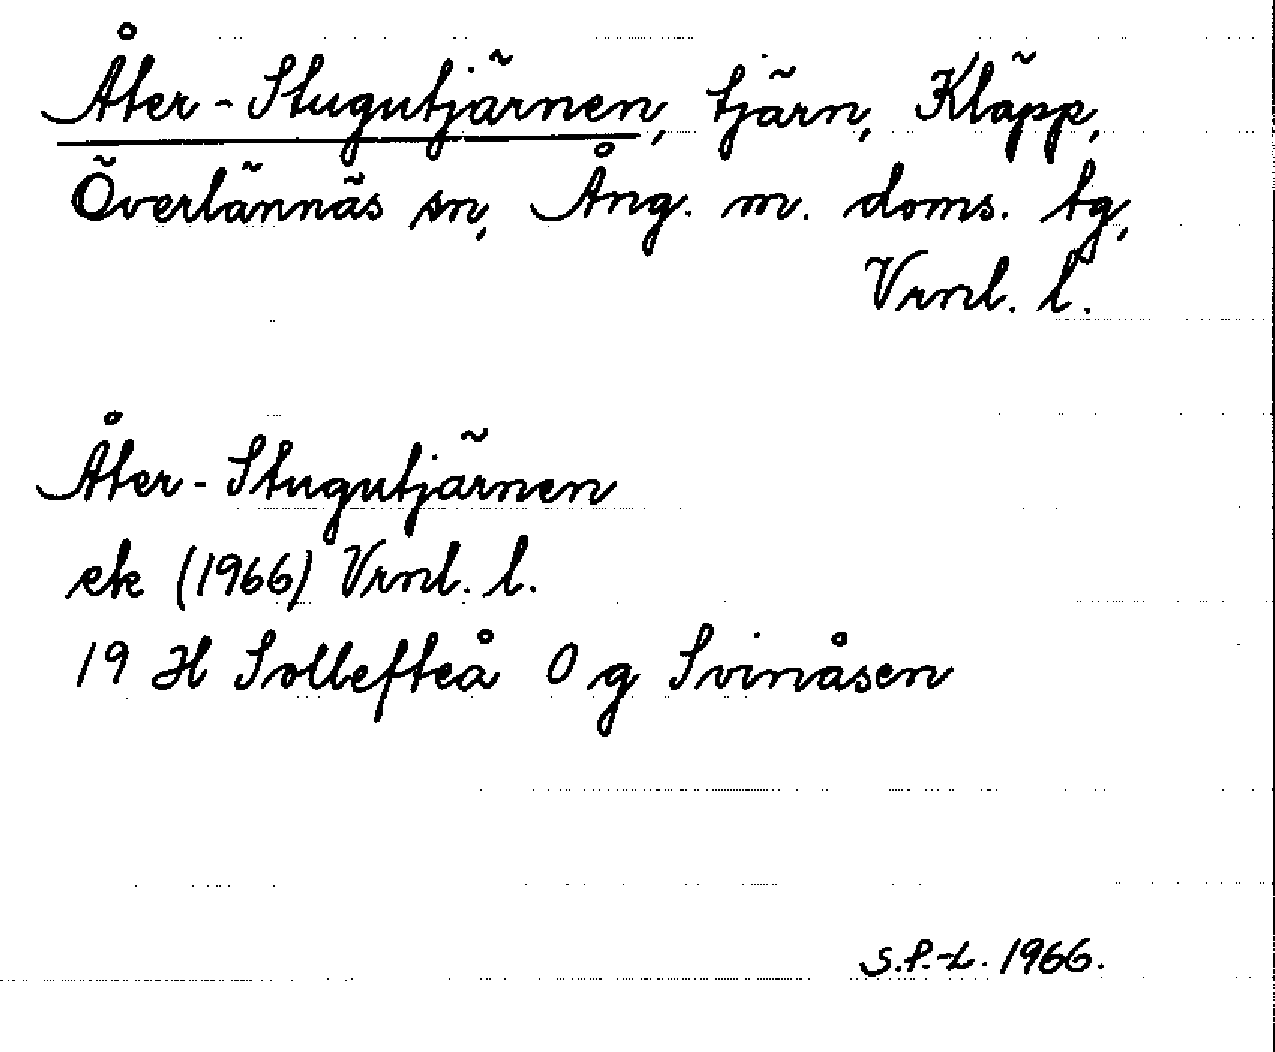 Åter-Stugutjärnen, tjärn, Kläpp,
Överlännäs sn, Ång. m. doms. tg,
Vrnl. l.
Åter-Stugutjärnen
ek (1966) Vrnl. l.
19 H Sollefteå 0 g Svinåsen
S.P.-L. 1966.